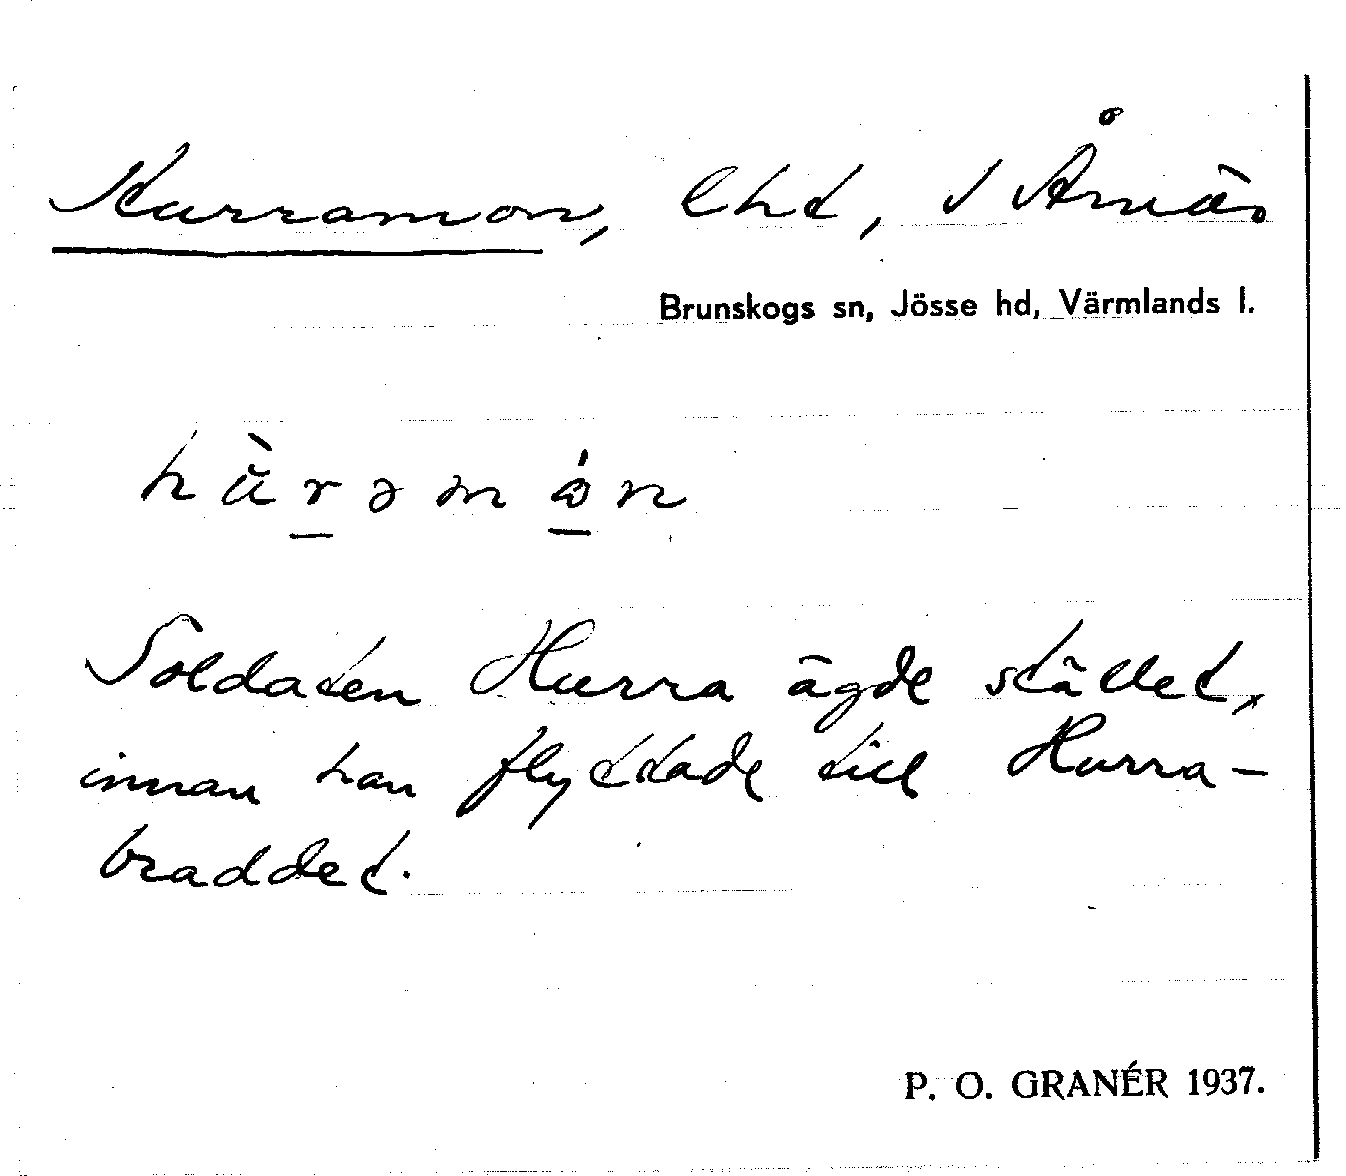 Hurramon, lht, S Årnäs
Brunskogs sn, Jösse hd, Värmlands l.
hùrəmón
Soldaten Hurra ägde stället,
innan han flyttade till Hurra-
braddet.
P. O. GRANÉR 1937.